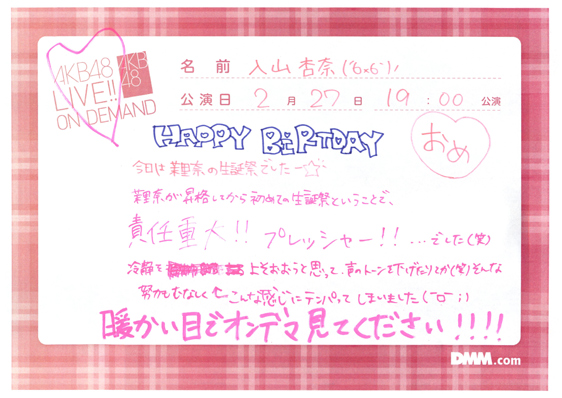 AKB48
LIVE!!
ON DEMAND
AKB
48
名前 入山杏奈('6x6')ﾉ
公演日 2月27日 19:00 公演
HAPPY BERTDAY
おめ
今日は茉里奈の生誕祭でしたー☆
茉里奈が昇格してから初めての生誕祭ということで、
責任重大!! プレッシャー!! …でした(笑)
冷静を よそおおうと思って、声のトーンを下げたりとか(笑)そんな
努力もむなしく ←こんな感じにテンパってしまいました(¯□¯;)
暖かい目でオンデマ見てください!!!!
DMM.com